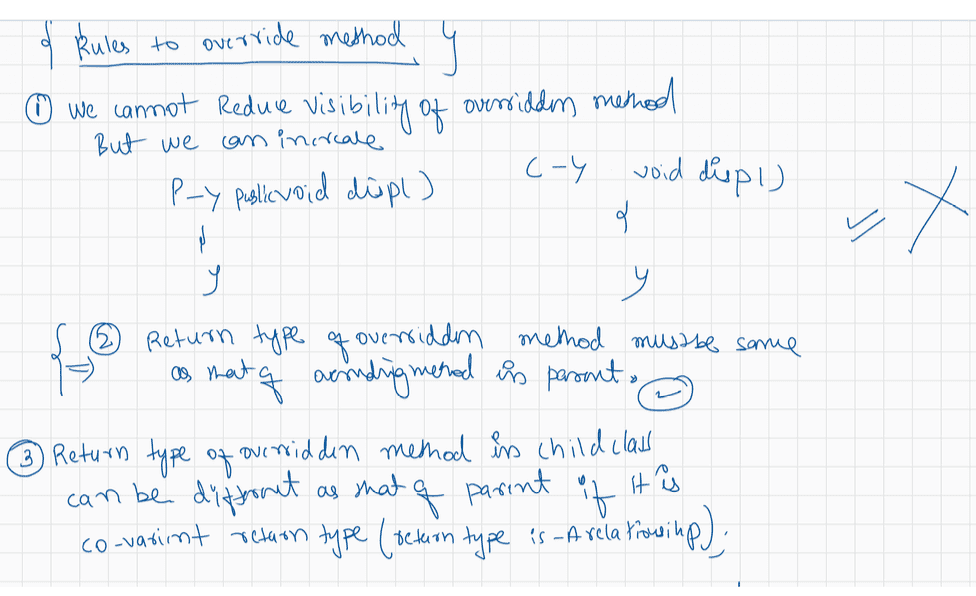 { Rules to override method }
① We cannot Reduce visibility of overridden method
But we can increase
P -> public void disp()
C -> void disp()
{
{
}
}
② Return type of overridden method must be same
as that of method in parent.
③ Return type of overridden method in child class
can be different as that of parent if it is
co-varient return type (return type is-A relationship).